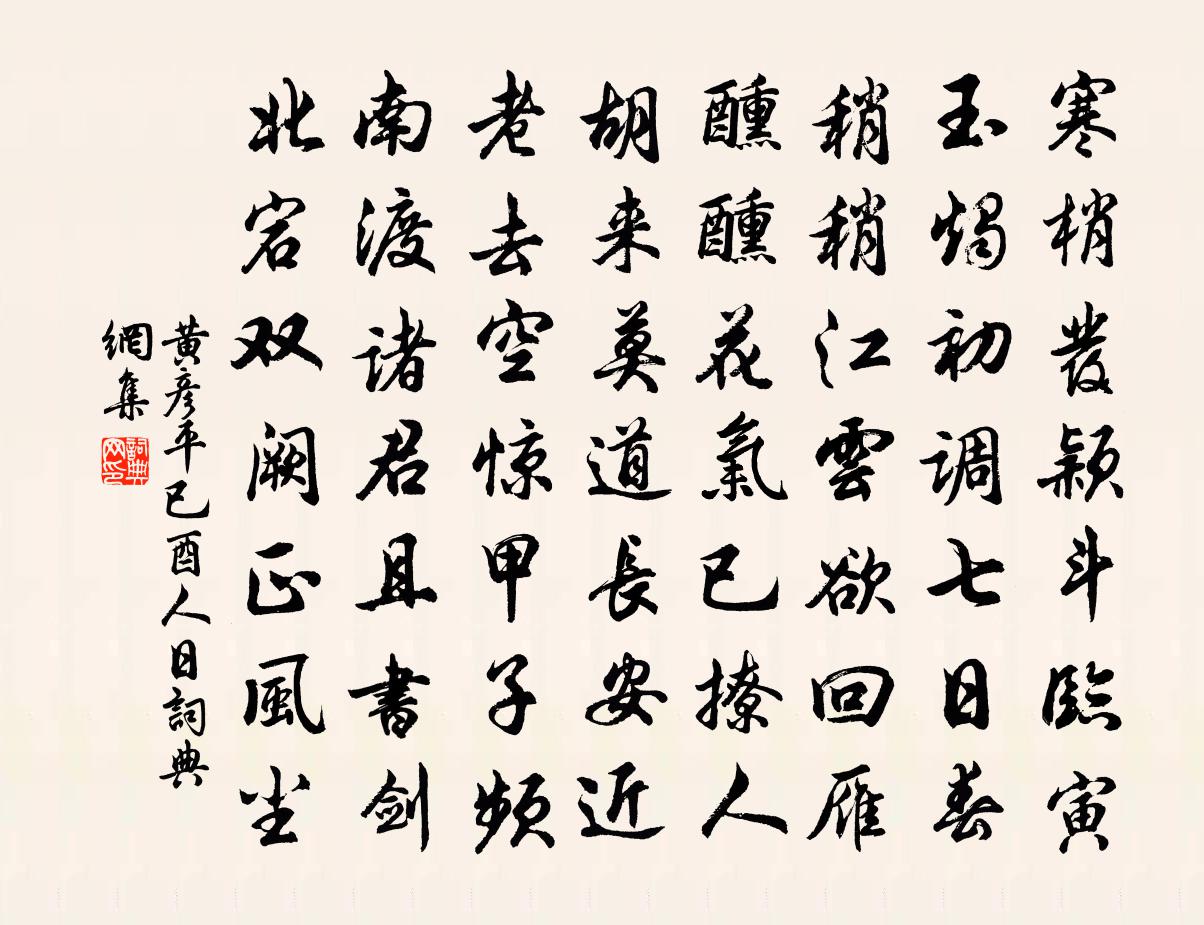 寒梢發颖斗臨寅
玉燭初调七日春
稍稍江雲欲回雁
醺醺花氣已撩人
胡来莫道長安近
老去空惊甲子频
南渡诸君且書劍
北宕双阙正風尘
黄彦平己酉人日詞典
網集
詞典
网印